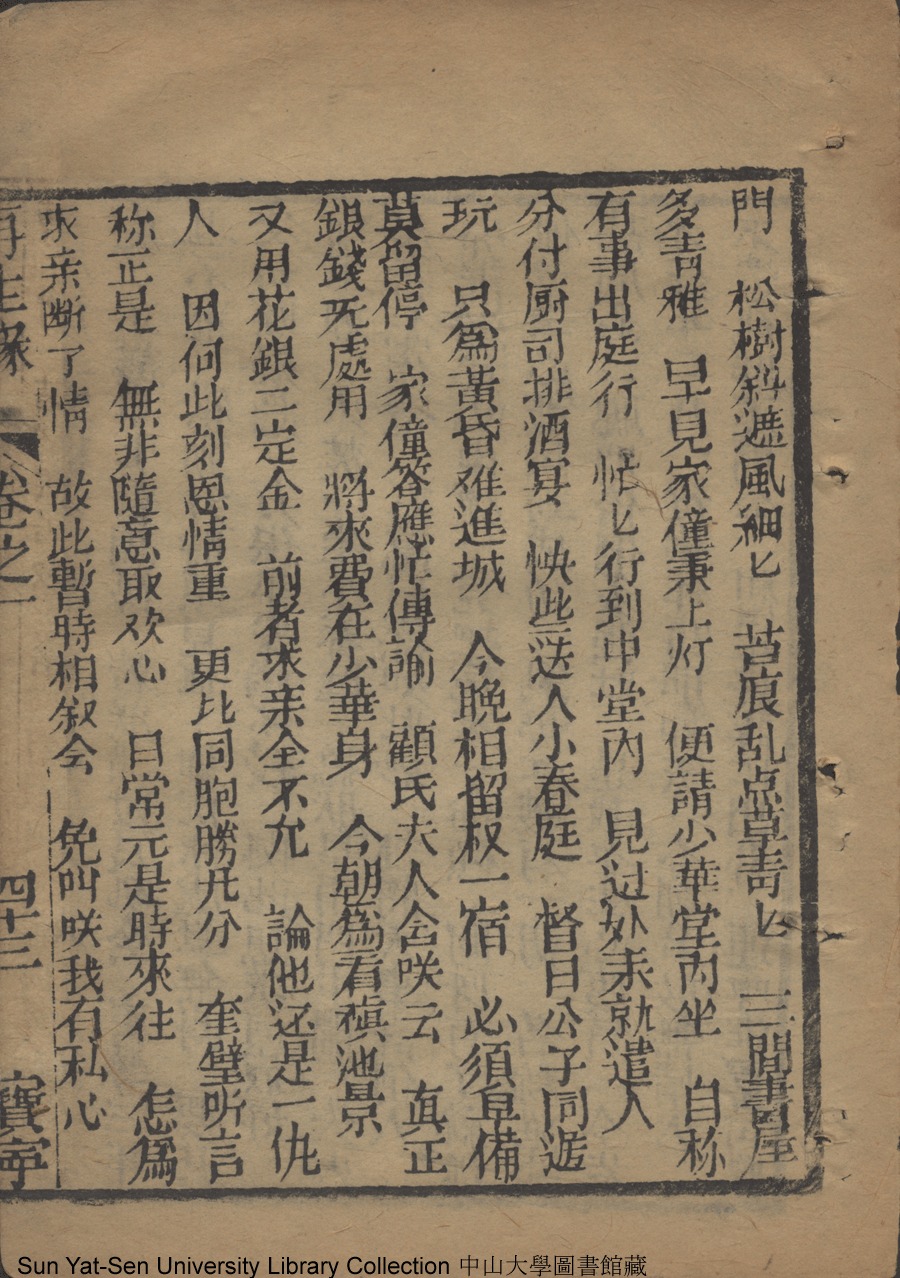 門　松樹斜遮風細匕　苔痕乱点草青匕　三間書屋
多青雅　早見家僮秉上灯　便請少華堂內坐　自称
有事出庭行　忙匕行到中堂內　見过外耒就遣人
分付厨司排酒宴　怏此送入小春庭　督日公子同遊
玩　只爲黃昏难進城　今晚相留权一宿　必須早備
莫留停　家僮答應忙傳諭　顧氏夫人含咲云　眞正
銀錢旡處用　將來費在少華身　今朝爲看禛池景
又用花銀二定金　前者求亲全不允　論他还是一仇
人　因何此刻恩情重　更比同胞勝九分　奎壁听言
称正是　無非隨意取欢心　日常元是時來往　怎爲
求亲断了情　故此暫時相叙会　免叫咲我有私心
再生緣　卷之一　四十三　寶寧
Sun Yat-Sen University Library Collection 中山大學圖書館藏